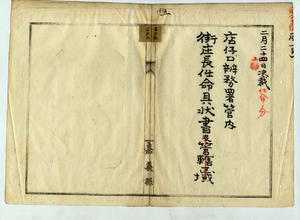 二月二十四日決裁
店仔口辨務署管內
街庄長任命具狀書及管轄
嘉義縣